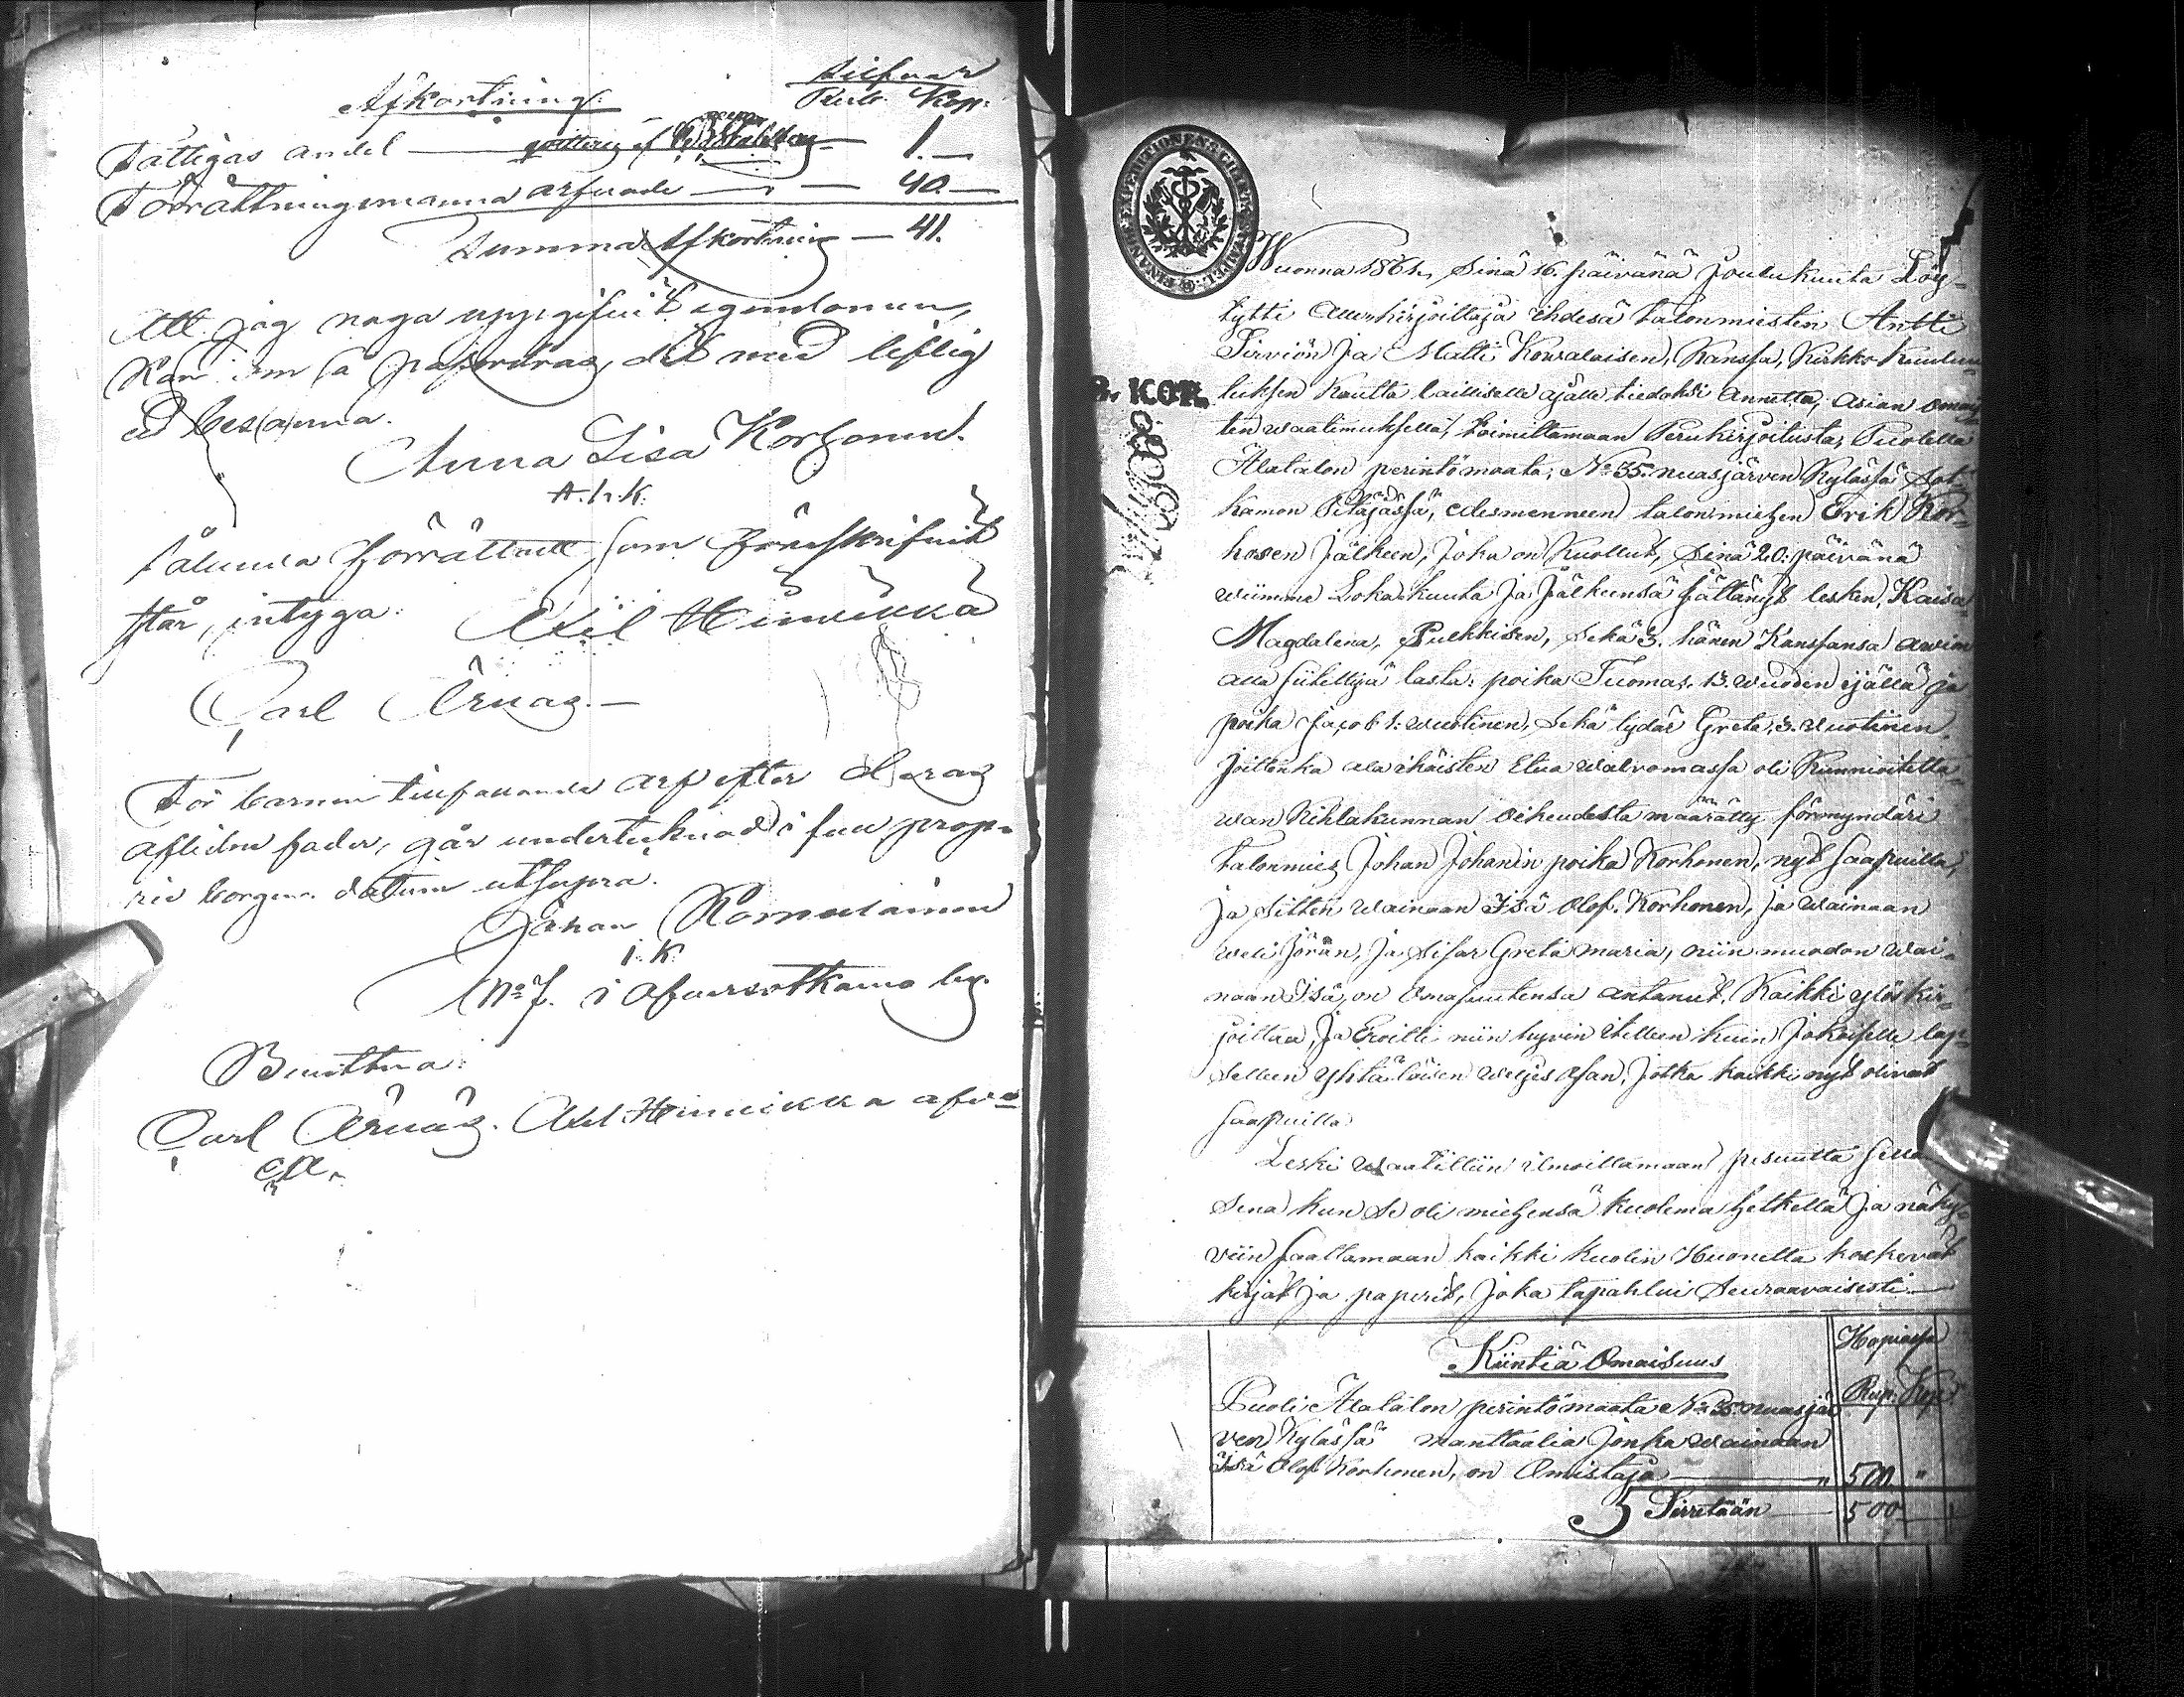 Afkortning.
Silfver
Rub. Kop.
Fattigas andel — qvitteras af — 1. —
Förrättningsmanna arfvode — 40. —
Summa Afkortning — 41.
Att jag noga uppgifvit egendomen,
kan jag så påfordras, det med liflig
ed besanna.
Anna Lisa Korhonen.
A. L. K.
Sålunda förrättadt som föreskrifvit
står, intyga:
Axel Heinikka
Carl Ärnäs. —
För barnen tillfallande arf efter deras
aflidne fader, går undertecknad i full prop-
rie borgen. datum utsupra.
Johan Komulainen
I. K.
No 7. i Ofversotkamo by.
Bevittna:
Carl Ärnäs. Axel Heinikka
FINANCE EXPEDITIONENS CHARTÆ STÄMPEL.
KOP.
Wuonna 1861, Sinä 16. päivänä Joulukuuta Löy-
tytti Allekirjoittaja yhdesä talonmiesten Antti
Sirviön ja Matti Kowalaisen, Kanssa, Kirkko Kuulu-
tuksen Kautta laillisella ajalla tiedoksi Annettu, asian omais-
ten waatimuksella, toimittamaan Perukirjoitusta, Puolella
Alatalon perintömaata, No 35. nuasjärven Kylässä Sot-
kamon Pitäjässä, edesmenneen talonmiehen Erik Kor-
hosen Jälkeen, joka on Kuollut, Sinä 20. päivänä
wiimme Loka kuuta ja Jälkeensä Jättänyt lesken, Kaisa
Magdalena, Pulkkisen, Sekä 3. hänen Kanssansa awion
alla siitettyä lasta: poika Tuomas, 13. wuoden ijällä ja
poika Jacob 1. wuotinen, Sekä tydär Greta, 3. wuotinen.
Joittenka ala ikäisten Etua walwomassa oli Kunnioitetta-
wan Kihlakunnan Oikeudesta määrätty förmyndäri
talonmies Johan Johanin poika Korhonen, nyt saapuilla,
ja sitten wainaan Isä Olof Korhonen, ja wainaan
weli Jöran, ja Sisar Greta maria, niin muodon wai-
naan Isä, on Omasuutensa antanut, Kaikki ylös kir-
joittaa, ja Eroitti niin hyvin itelleen kuin Jokaiselle lap-
selleen yhtäläisen weljes osan, Jotka kaikki nyt olivat
saapuilla.
Leski Waatittiin ilmoittamaan pesuutta
sena kun se oli miehensä kuolema hetkellä ja näky-
viin saattamaan kaikki kuolin Huonetta koskevat
kirjat ja paperit, Joka tapahtui Seuraavaisesti —
Kiintiä Omaisuus
Hopiassa
Rup. Kop.
Puoli Alatalon perintömaata No 35. nuasjär
ven Kylässä manttaalia Jonka wainaan
isä Olof Korhonen, on Omistaja — " 500. "
Siirretään — 500